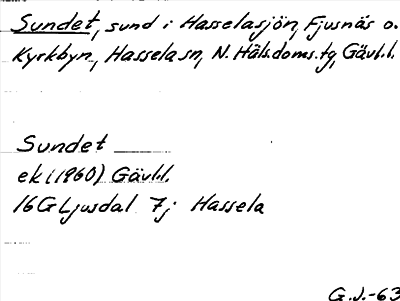 Sundet, sund i Hasselasjön, Fjusnäs o.
Kyrkbyn, Hassela sn, N. Häls.doms.tg, Gävl.l.
Sundet
ek (1960) Gävl.l.
16G Ljusdal 7j Hassela
G.J.-63